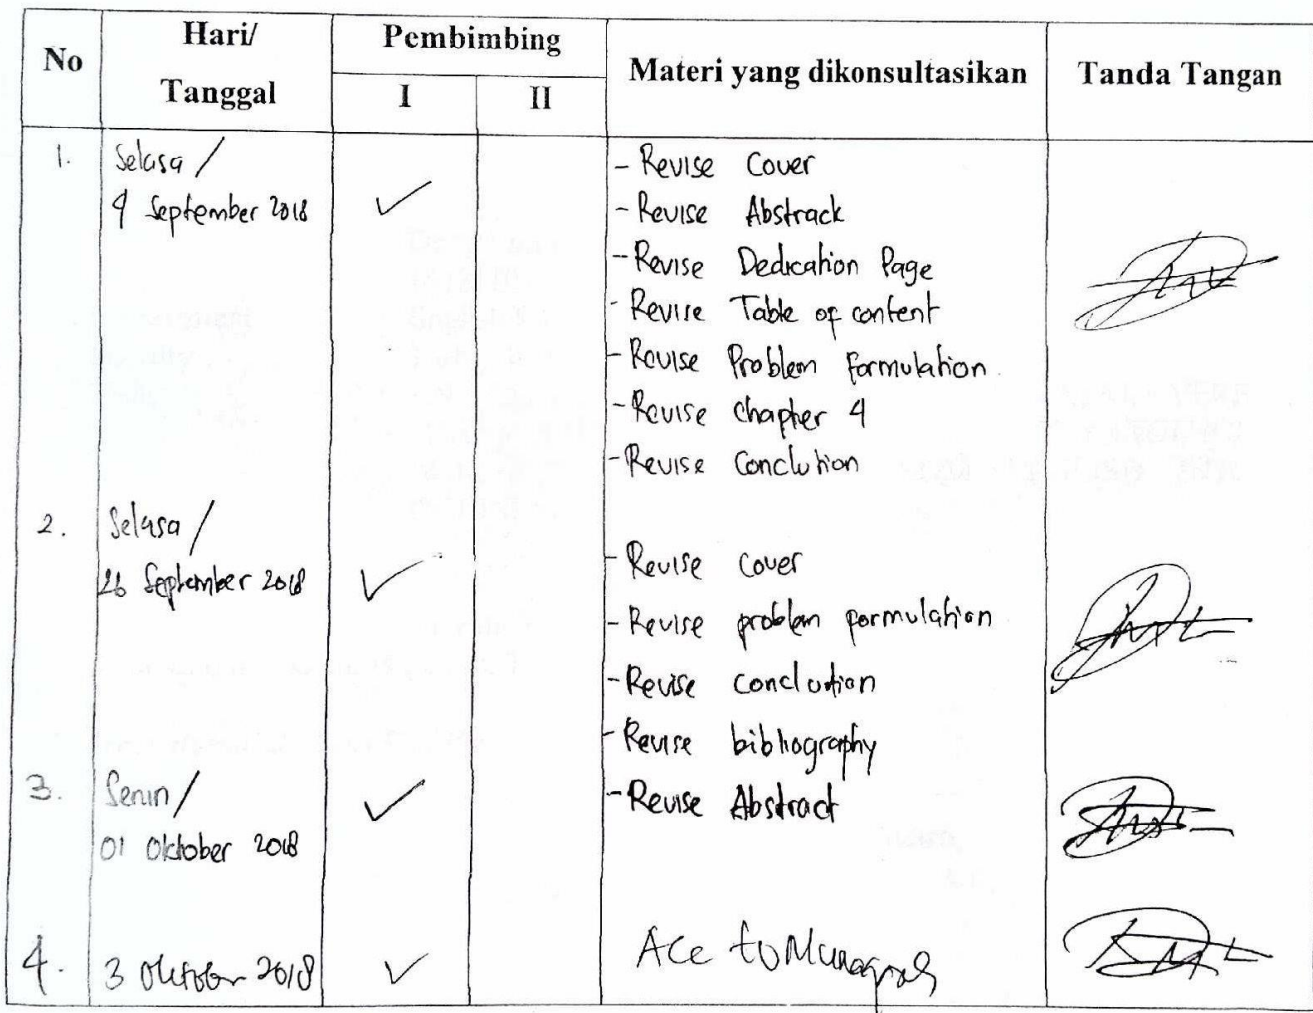 No
Hari/
Tanggal
Pembimbing
I
II
Materi yang dikonsultasikan
Tanda Tangan
1.
Selasa /
4 September 2018
- Revise Cover
- Revise Abstrack
- Revise Dedication Page
- Revise Table of content
- Revise Problem Formulation
- Revise Chapter 4
- Revise Conclution
2.
Selasa /
26 September 2018
- Revise cover
- Revise problem formulation
- Revise conclution
- Revise bibliography
3.
Senin /
01 Oktober 2018
- Revise Abstract
4.
3 Oktober 2018
Acc to Munaqosah